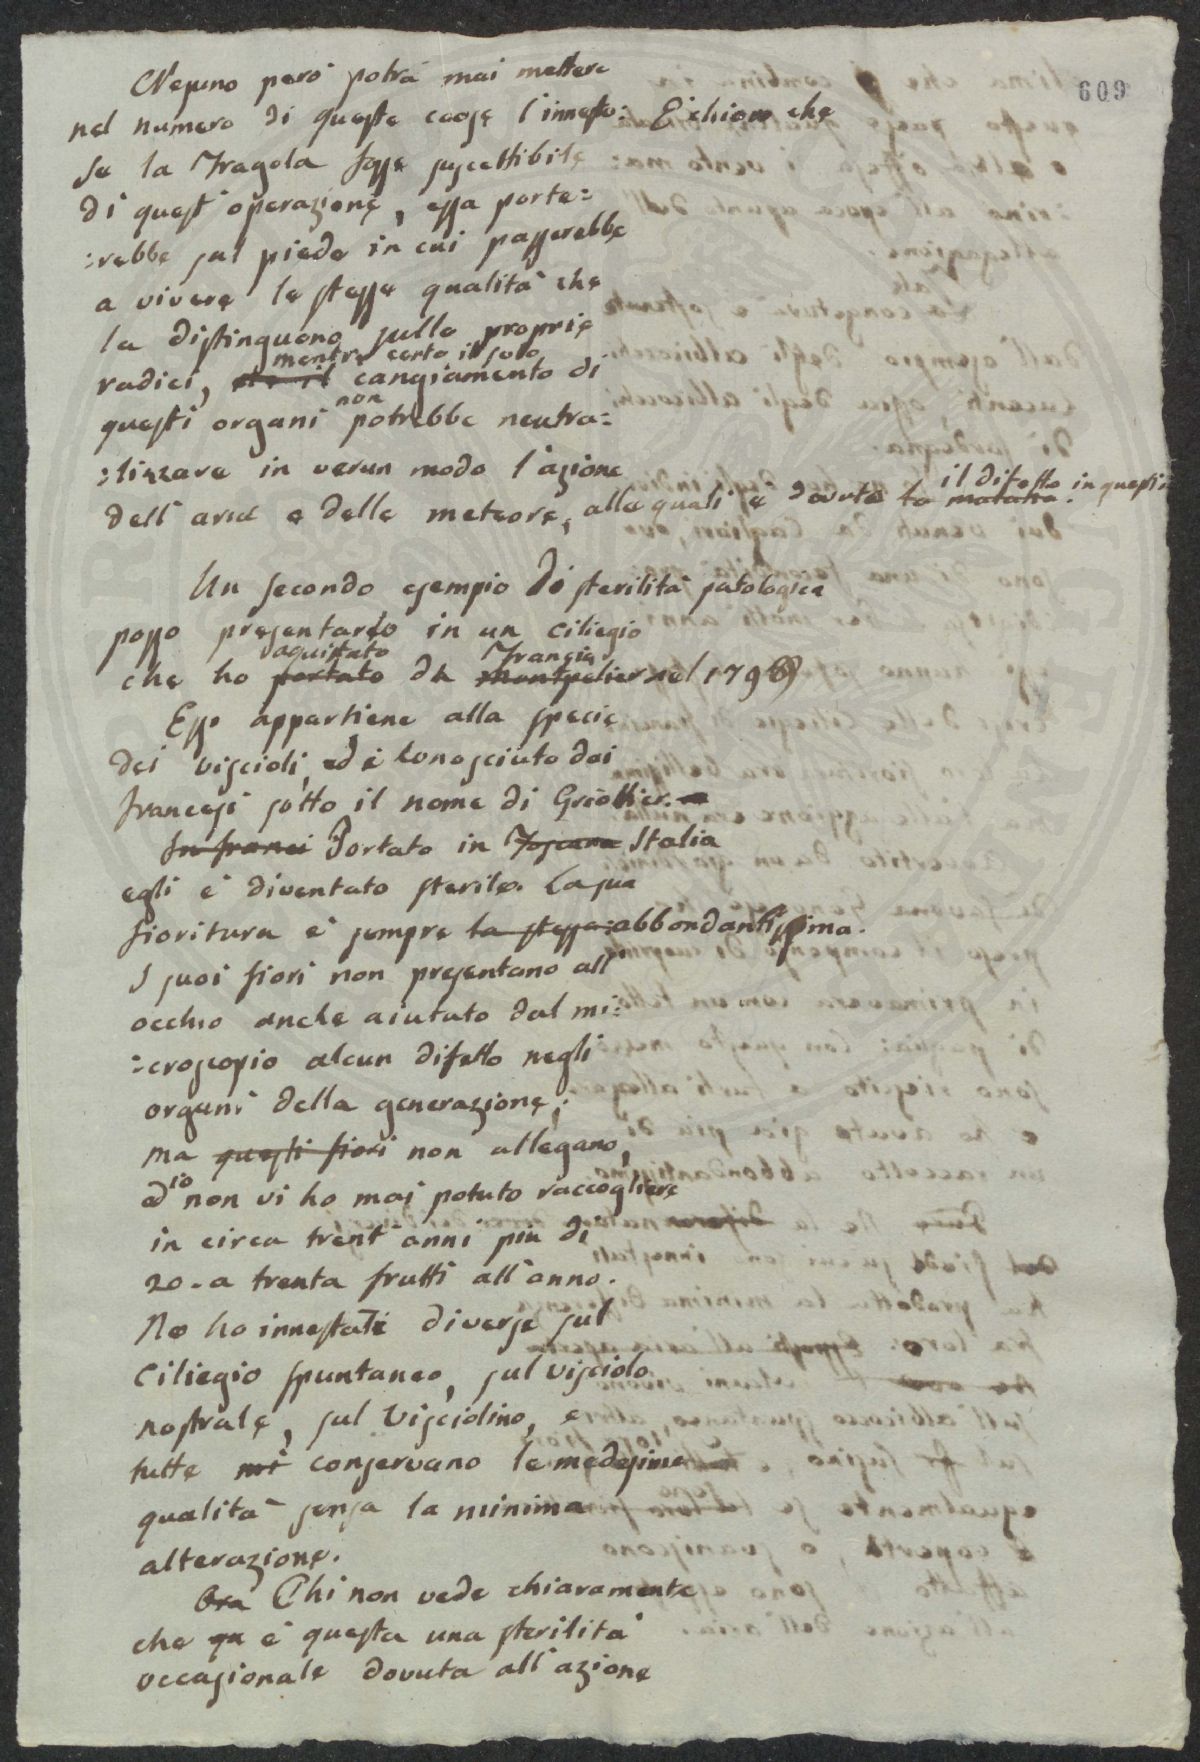 609
Nessuno però potrà mai mettere
nel numero di queste cause l'innesto: È chiaro che
se la Fragola fosse suscettibile
di quest'operazione, essa porte=
:rebbe sul piede in cui passerebbe
a vivere le stesse qualità che
la distinguono sulle proprie
mentre certo il solo
radici, che il cangiamento di
non
questi organi potrebbe neutra=
:lizzare in verun modo l'azione
il difetto in questi:
dell'aria e delle meteore, alle quali è dovuto la malattia.
Un secondo esempio di sterilità patologica
posso presentarlo in un ciliegio
aquistato Francia
che ho portato da Montpelier nel 179
Esso appartiene alla specie
dei viscioli, ed è conosciuto dai
francesi sotto il nome di Griottier.
In franci Portato in Toscana Italia
egli è diventato sterile. La sua
fioritura è sempre la stessa: abbondantissima.
I suoi fiori non presentano all'
occhio anche aiutato dal mi:
:croscopio alcun difetto negli
organi della generazione;
ma questi fiori non allegano,
io
ed non vi ho mai potuto raccogliere
in circa trent'anni più di
20. a trenta frutti all'anno.
Ne ho innestati diverse sul
Ciliegio spuntaneo, sul visciolo
nostrale, sul Visciolino, e
tutte mi conservano le medesime
qualità senza la minima
alterazione.
Ora Chi non vede chiaramente
che qu è questa una sterilità
occasionale dovuta all'azione